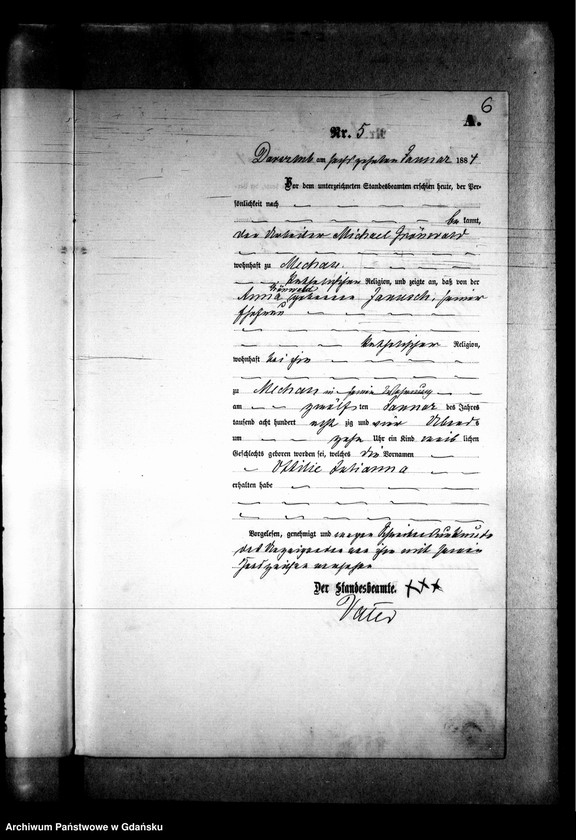 6
A.
Nr. 5
am sechszehnten Januar 1884
Vor dem unterzeichneten Standesbeamten erschien heute, der Per-
sönlichkeit nach
be kannt,
der Michael
wohnhaft zu Mechau
katholischer Religion, und zeigte an, daß von der
Anna geborene Janusch, seiner
Ehefrau
katholischer Religion,
wohnhaft bei ihm
zu Mechau in seiner Wohnung
am zwölf ten Januar des Jahres
tausend acht hundert acht zig und vier Abends
um zehn Uhr ein Kind weib lichen
Geschlechts geboren worden sei, welches die Vornamen
Ottilie Julianna
erhalten habe
Vorgelesen, genehmigt und wegen Schreibensunkunde
des Anzeigenden von ihm mit seinem
Handzeichen versehen
Der Standesbeamte. +++
Archiwum Państwowe w Gdańsku